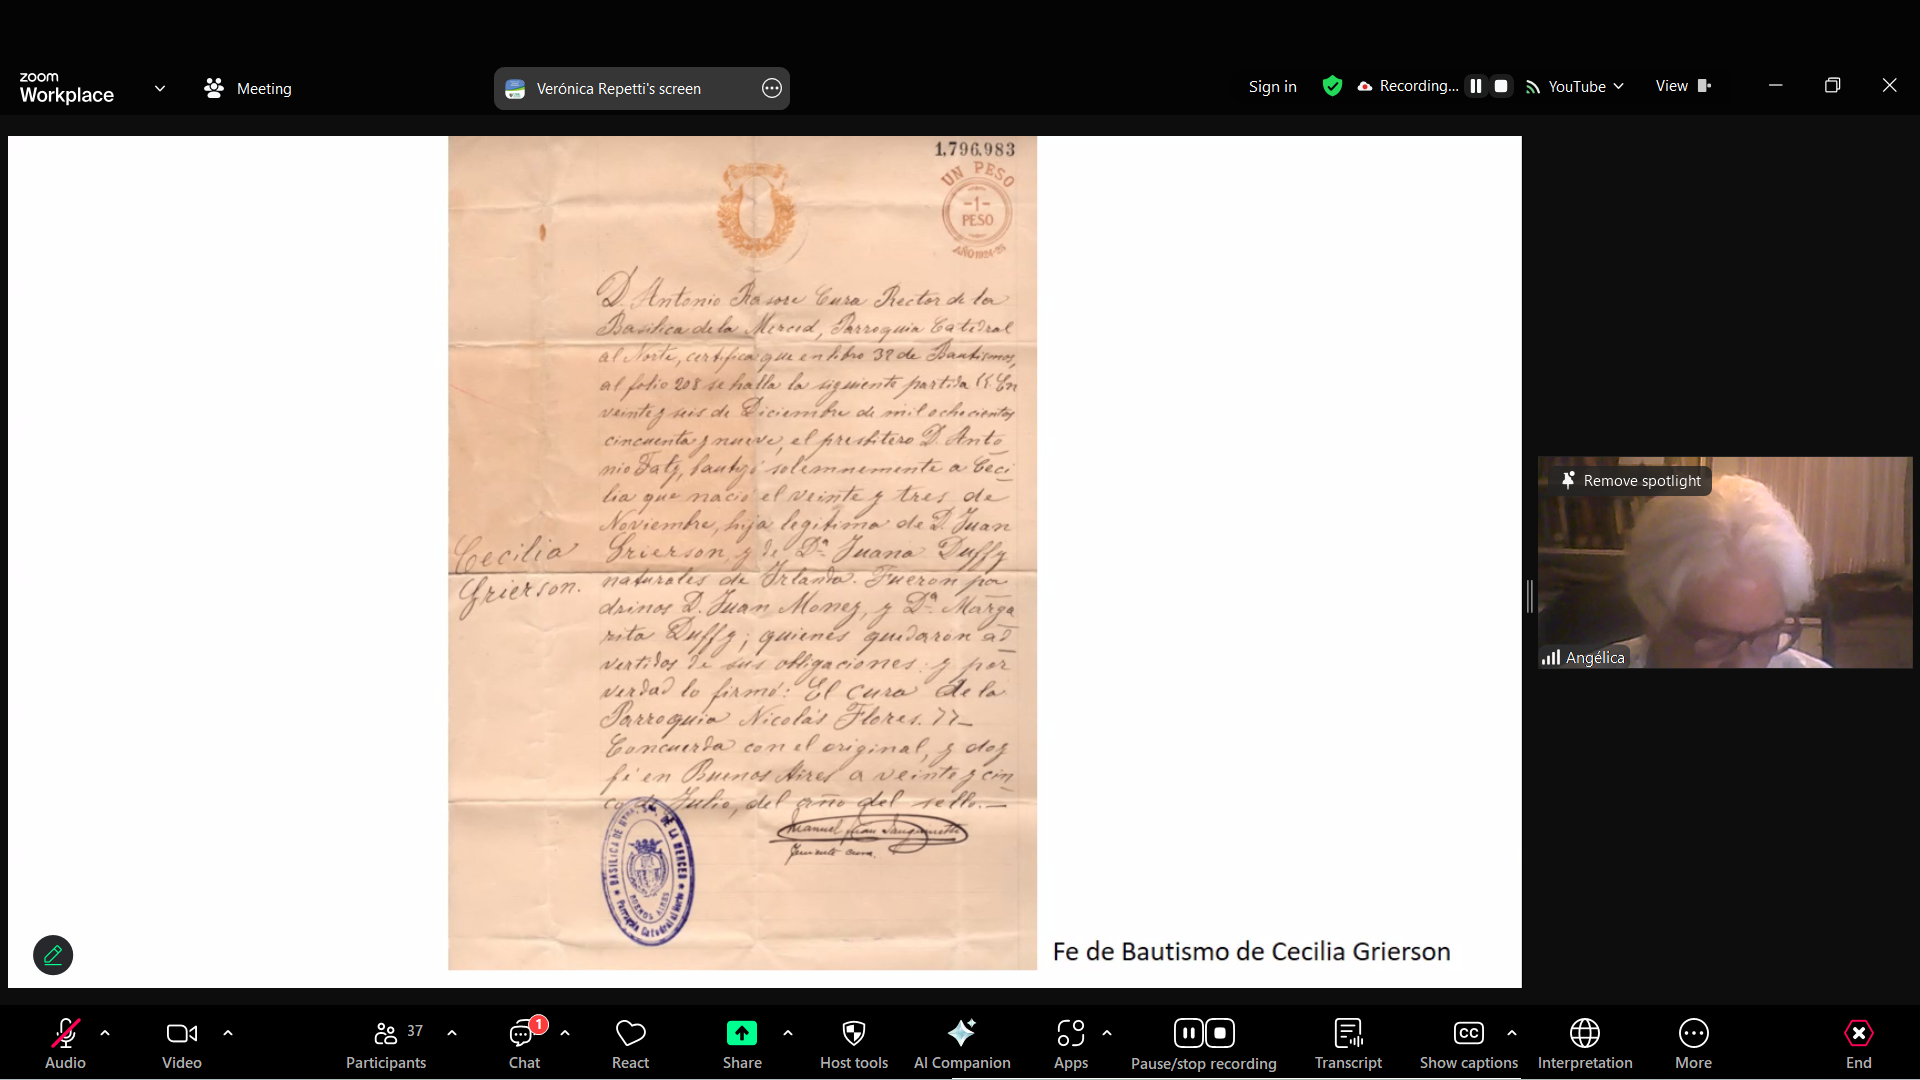 zoom
Workplace
Meeting
Verónica Repetti's screen
Sign in
Recording...
YouTube
View
1.796.983
UN PESO
-1-
PESO
AÑO 1924-25
D. Antonio Rasore Cura Rector de la
Basílica de la Merced, Parroquia Catedral
al Norte, certifica que en libro 32 de Bautismos,
al folio 208 se halla la siguiente partida "En
veinte y seis de Diciembre de mil ochocientos
cincuenta y nueve, el presbítero D. Anto
nio Fahy, bautizó solemnemente a Ceci
lia que nació el veinte y tres de
Noviembre, hija legítima de D. Juan
Grierson, y de Dª Juana Duffy
naturales de Irlanda. Fueron pa
drinos D. Juan Money, y Dª Marga
rita Duffy; quienes quedaron ad
vertidos de sus obligaciones: y por
verdad lo firmé: El cura de la
Parroquia Nicolás Flores."—
Concuerda con el original, y doy
fé en Buenos Aires a veinte y cin
co de Julio, del año del sello.—
Cecilia
Grierson.
Manuel Juan Sanguinetti
Teniente cura.
BASILICA DE NTRA. SRA. DE LA MERCED
BUENOS AIRES
Parroquia Catedral al Norte
Fe de Bautismo de Cecilia Grierson
Remove spotlight
Angélica
Audio
Video
37
Participants
1
Chat
React
Share
Host tools
AI Companion
Apps
Pause/stop recording
Transcript
CC
Show captions
Interpretation
More
End